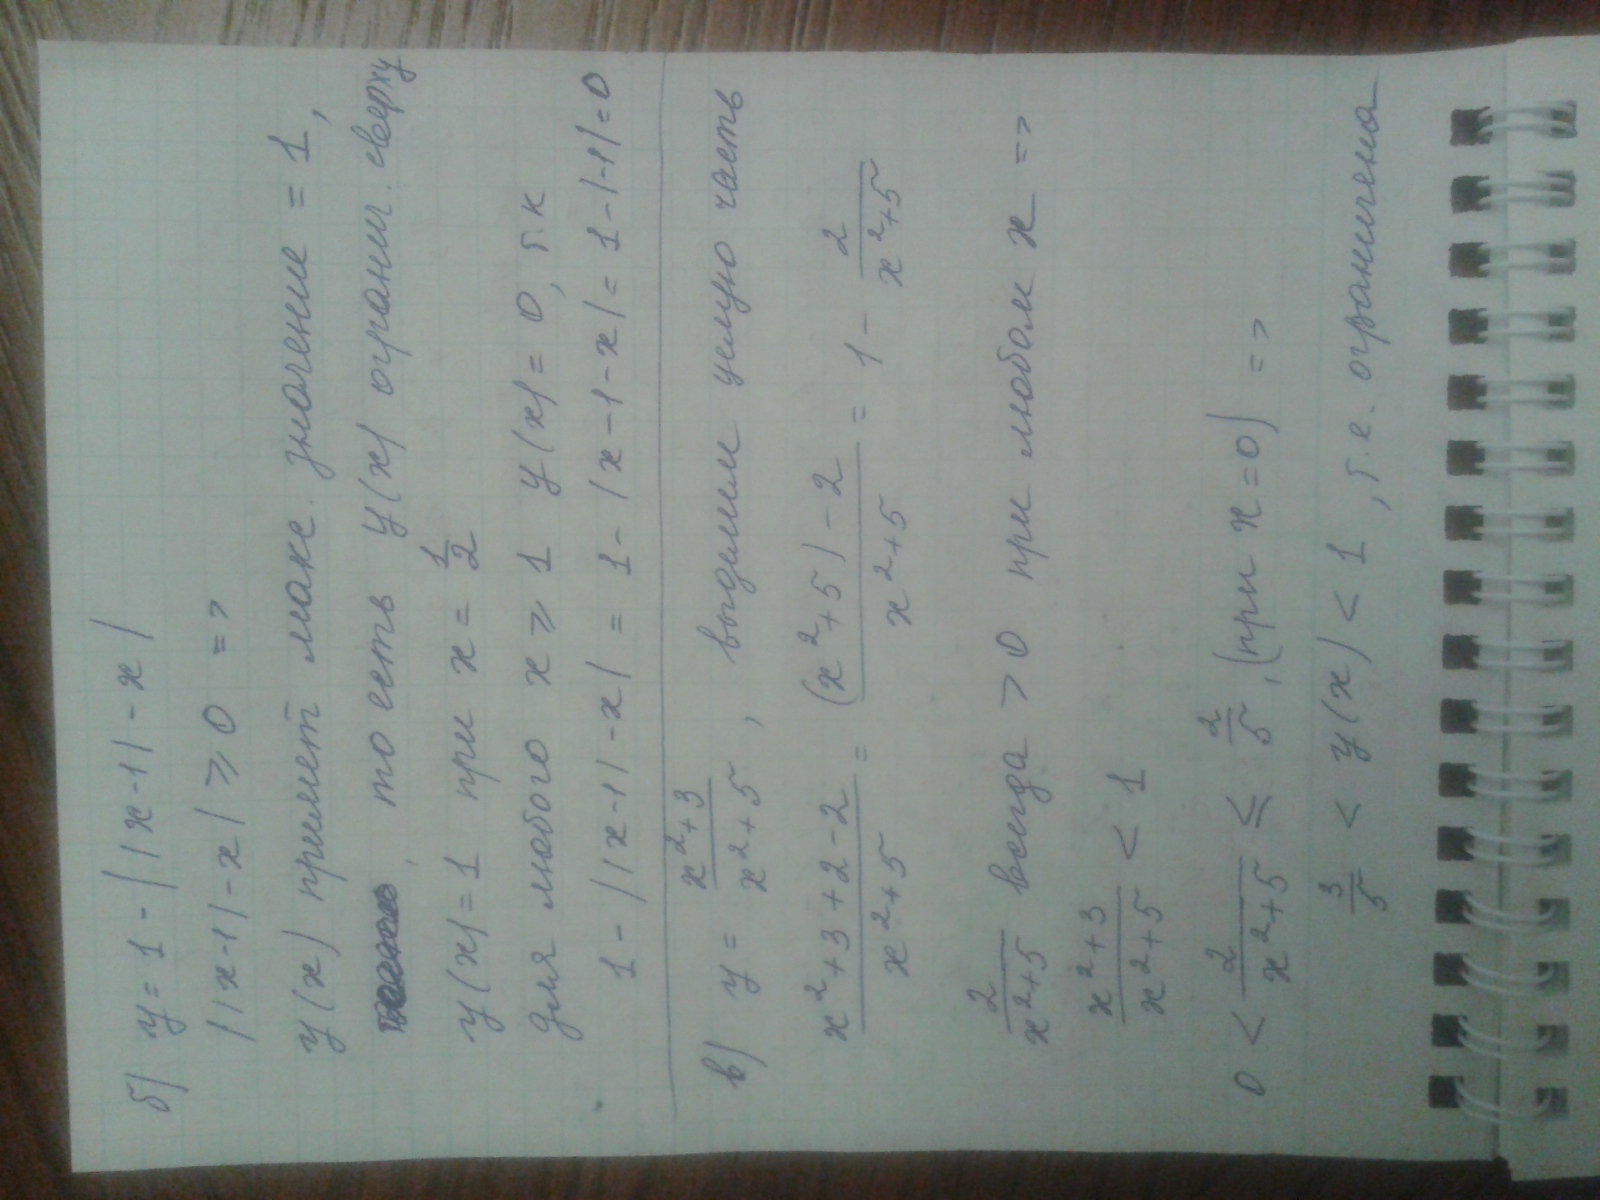 б) y = 1 - | |x-1| - x |
| |x-1| - x | ⩾ 0 =>
y(x) примет макс. значение = 1,
, то есть y(x) огранич. сверху
y(x) = 1 при x = 1/2
для любого x ⩾ 1 y(x) = 0, т.к
1 - | |x-1| - x | = 1 - |x-1-x| = 1 - |-1| = 0
в) y = (x²+3)/(x²+5), выделим целую часть
(x²+3+2-2)/(x²+5) = ((x²+5)-2)/(x²+5) = 1 - 2/(x²+5)
2/(x²+5) всегда > 0 при любом x =>
(x²+3)/(x²+5) < 1
0 < 2/(x²+5) ≤ 2/5, (при x=0) =>
3/5 < y(x) < 1, т.е. ограничена